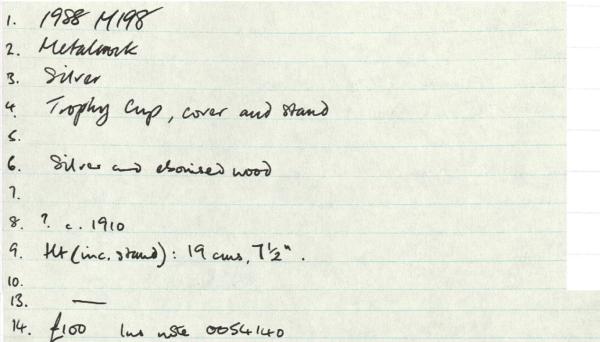 1. 1988 M198
2. Metalwork
3. Silver
4. Trophy Cup, cover and stand
5.
6. Silver and ebonised wood
7.
8. ? c. 1910
9. Ht (inc. stand): 19 cms, 7½".
10.
13. —
14. £100 Ins note 0054140